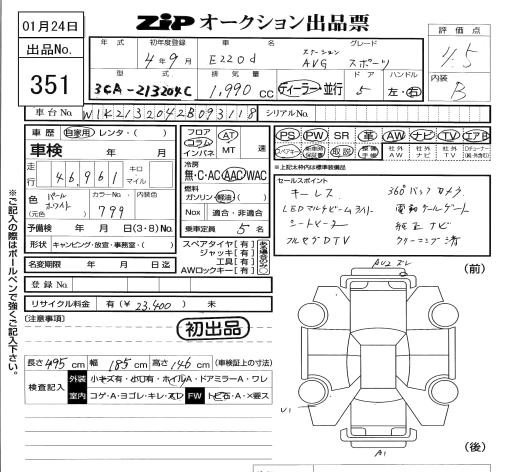 01月24日
出品No.
351
ZIP オークション出品票
評価点
4.5
内装
B
年式 初年度登録 車名 グレード
4年9月 E220d ステーション AVG スポーツ
型式 排気量 ドア ハンドル
3CA-213204C 1,990 cc ディーラー・並行 5 左・右
車台No. W1K2132042B093118 シリアルNo.
車歴 自家用 レンタ・( )
車検 年 月
走行 46,961 キロ マイル
色 パールホワイト カラーNo. 799 内装色
(元色)
予備検 年 月 日(3・8)No.
形状 キャンピング・放宣・事務室・( )
名変期限 年 月 日迄
登録No.
リサイクル料金 有(¥ 23,400 ) 未
フロア コラム インパネ
AT
MT 速
冷房
無・C・AC・AAC・WAC
燃料
ガソリン・軽油・( )
Nox 適合・非適合
乗車定員 5 名
スペアタイヤ【有・
ジャッキ【有・
工具【有・
AWロックキー【有・
PS PW SR 革 AW ナビ TV エアB
スペアキー 取説 社外AW 社外ナビ 社外TV
※上記太枠内は標準装備品
セールスポイント
キーレス 360°バックカメラ
LEDマルチビーム
シートヒーター 純正ナビ
フルセグDTV クリーニング済
[注意事項]
初出品
長さ 495 cm 幅 185 cm 高さ 146 cm (車検証上の寸法)
検査記入 外装 小キズ有・小凹有・ホイルA・ドアミラーA・ワレ
室内 コゲ・A・ヨゴレ・キレ・スレ FW トビ石・A・×要ス
※ご記入の際はボールペンで強くご記入下さい。
(前)
(後)
U1
A1